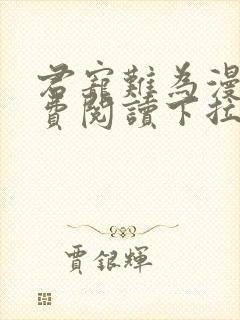 君寵難為漫
費閱讀下拉
賈銀輝